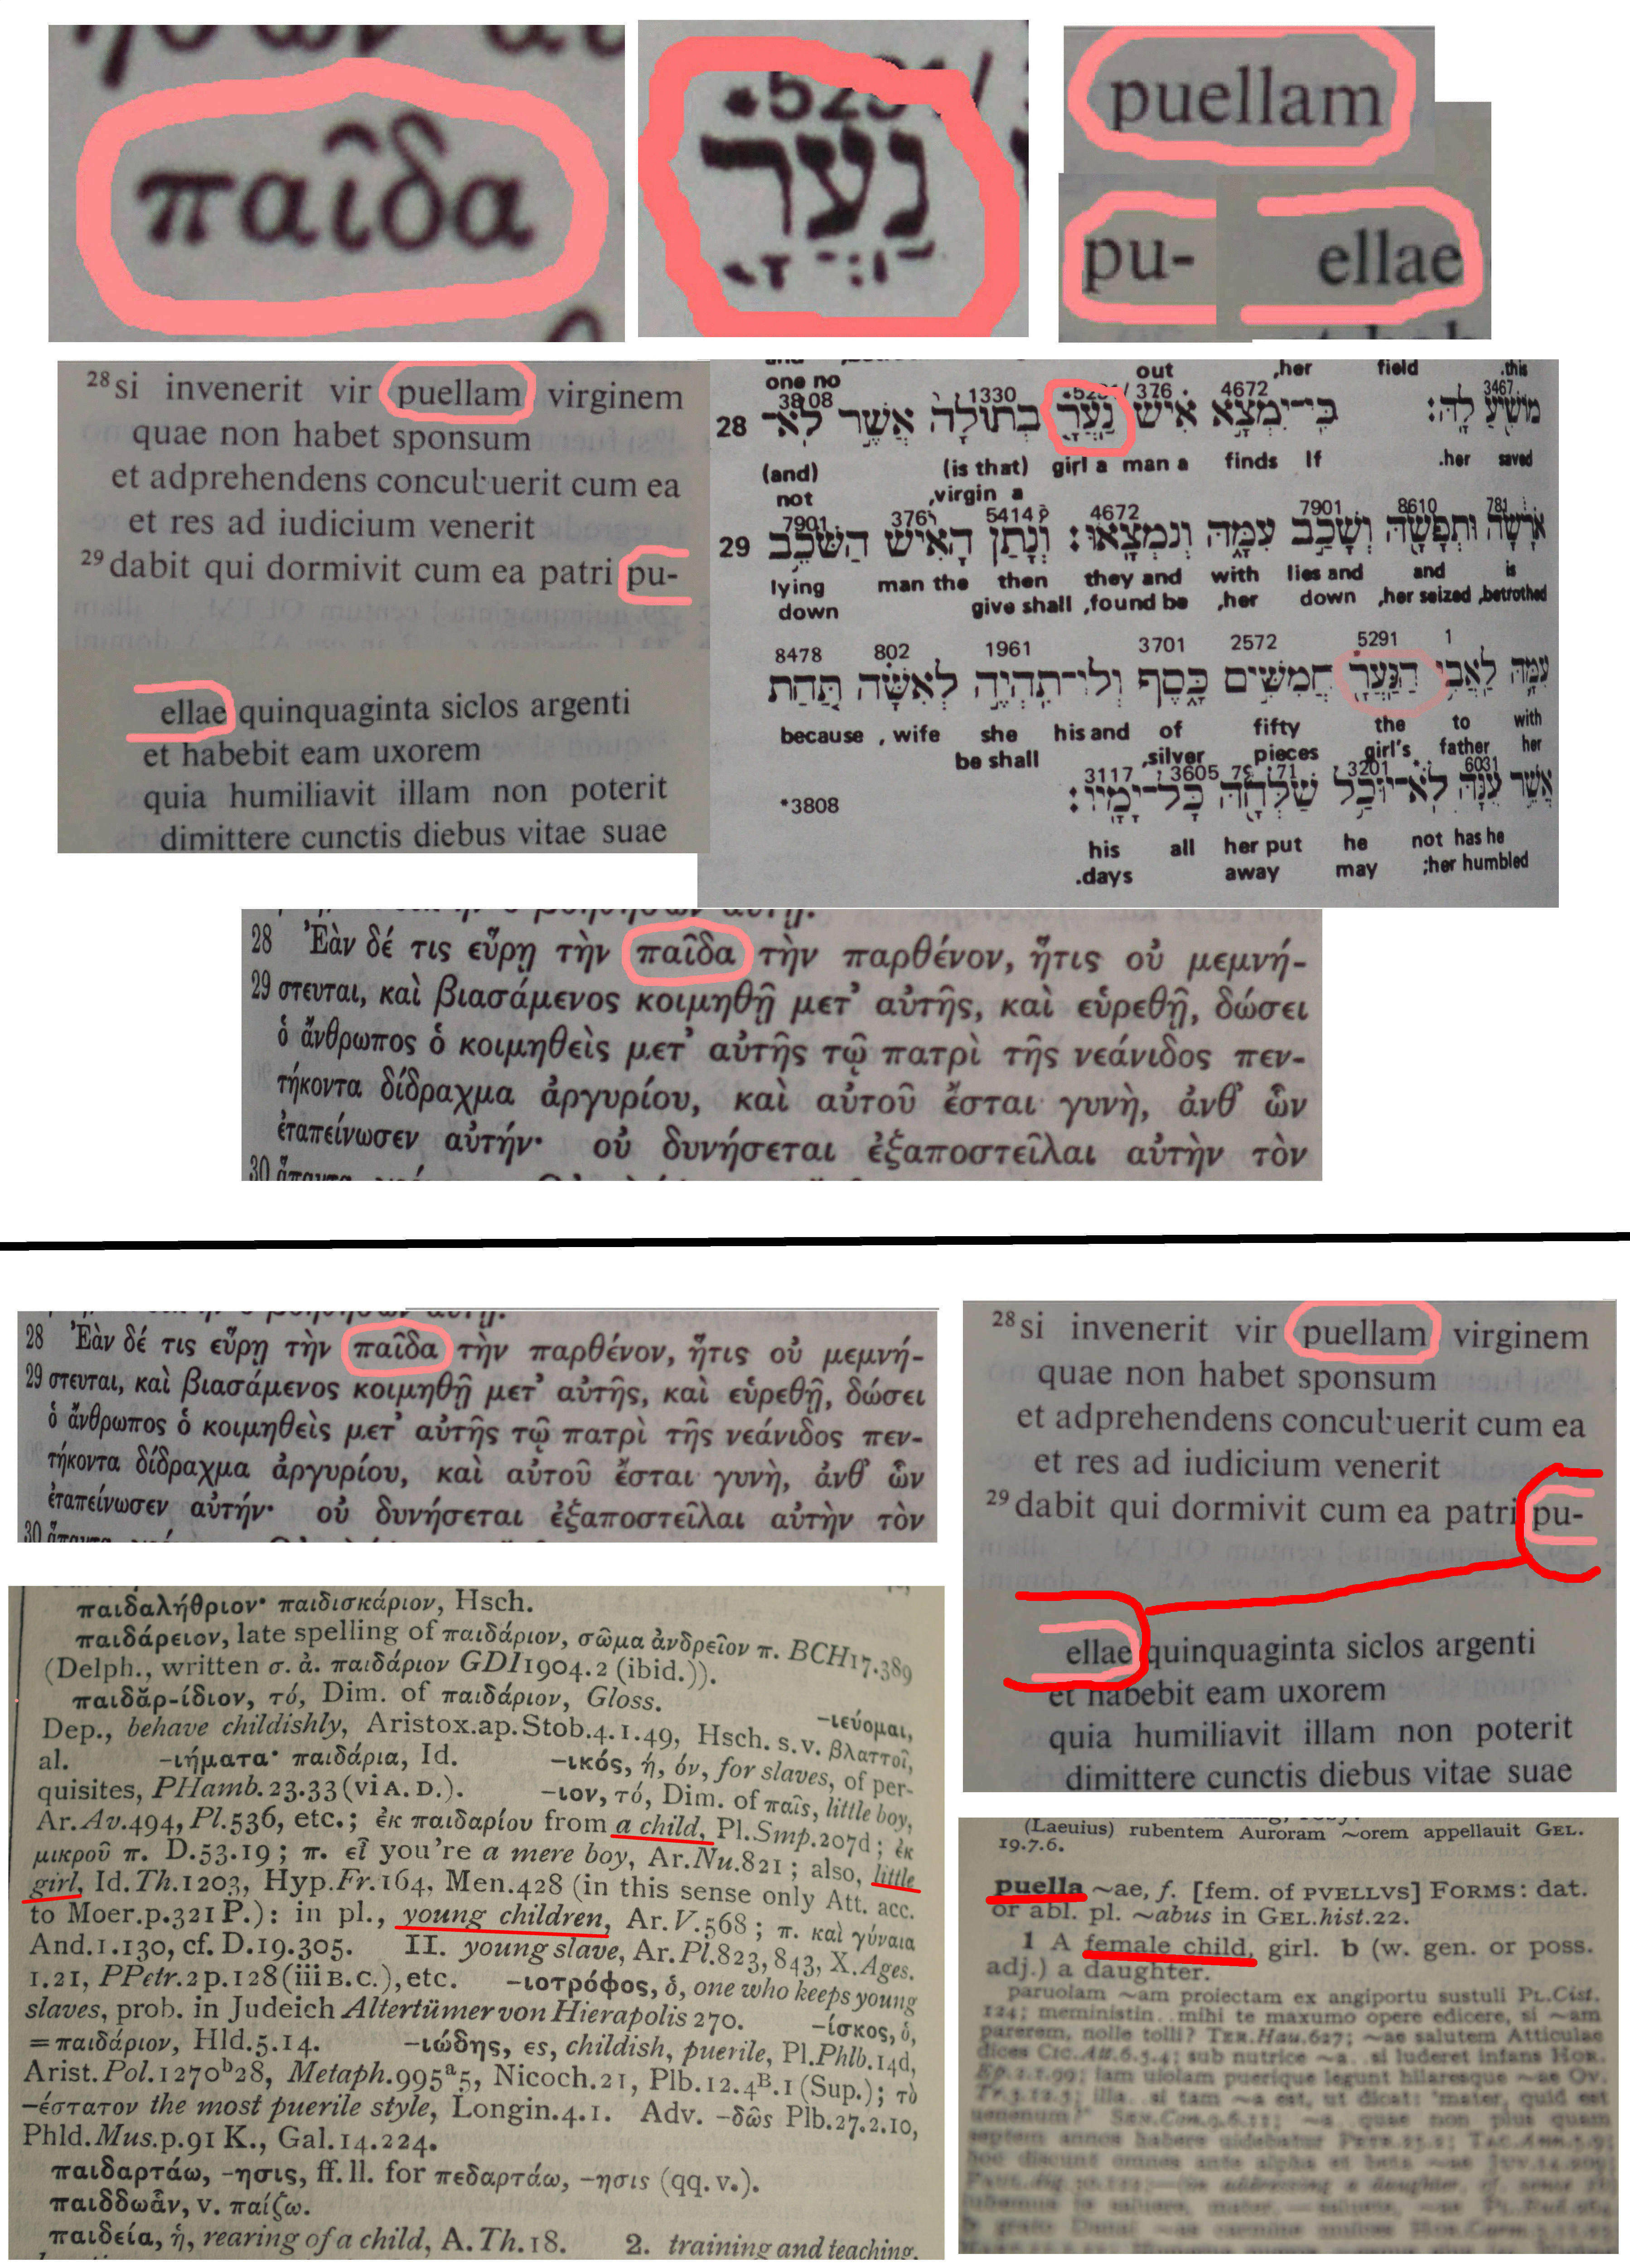 παῖδα
*5291/
נַעֲרָ
puellam
pu-
ellae
28 si invenerit vir puellam virginem
quae non habet sponsum
et adprehendens concubuerit cum ea
et res ad iudicium venerit
29 dabit qui dormivit cum ea patri pu-
ellae quinquaginta siclos argenti
et habebit eam uxorem
quia humiliavit illam non poterit
dimittere cunctis diebus vitae suae
one no out ,her field .this
3808 1330 *5291/ 376 4672 3467
28 מוֹשִׁיעַ לָהּ׃ כִּי־יִמְצָא אִישׁ נַעֲרָ בְתוּלָה אֲשֶׁר לֹא־
(and) (is that) girl a man a finds If .her saved
not ,virgin a
7901 376 5414 4672 7901 8610 781
29 אֹרָשָׂה וּתְפָשָׂהּ וְשָׁכַב עִמָּהּ וְנִמְצָאוּ׃ וְנָתַן הָאִישׁ הַשֹּׁכֵב
lying man the then they and with lies and and is
down give shall ,found be ,her down ,her seized ,betrothed
8478 802 1961 3701 2572 5291 1
עִמָּהּ לַאֲבִי הַנַּעֲרָ חֲמִשִּׁים כָּסֶף וְלוֹ־תִהְיֶה לְאִשָּׁה תַּחַת
because , wife she his and of fifty the to with
be shall ,silver pieces girl's father her
3117 3605 7971 3201 6031
*3808 אֲשֶׁר עִנָּהּ לֹא־יוּכַל שַׁלְּחָהּ כָּל־יָמָיו׃
his all her put he not has he
.days away may ;her humbled
28 Ἐὰν δέ τις εὕρῃ τὴν παῖδα τὴν παρθένον, ἥτις οὐ μεμνή-
29 στευται, καὶ βιασάμενος κοιμηθῇ μετ’ αὐτῆς, καὶ εὑρεθῇ, δώσει
ὁ ἄνθρωπος ὁ κοιμηθεὶς μετ’ αὐτῆς τῷ πατρὶ τῆς νεάνιδος πεν-
τήκοντα δίδραχμα ἀργυρίου, καὶ αὐτοῦ ἔσται γυνὴ, ἀνθ’ ὧν
ἐταπείνωσεν αὐτήν· οὐ δυνήσεται ἐξαποστεῖλαι αὐτὴν τὸν
30
28 Ἐὰν δέ τις εὕρῃ τὴν παῖδα τὴν παρθένον, ἥτις οὐ μεμνή-
29 στευται, καὶ βιασάμενος κοιμηθῇ μετ’ αὐτῆς, καὶ εὑρεθῇ, δώσει
ὁ ἄνθρωπος ὁ κοιμηθεὶς μετ’ αὐτῆς τῷ πατρὶ τῆς νεάνιδος πεν-
τήκοντα δίδραχμα ἀργυρίου, καὶ αὐτοῦ ἔσται γυνὴ, ἀνθ’ ὧν
ἐταπείνωσεν αὐτήν· οὐ δυνήσεται ἐξαποστεῖλαι αὐτὴν τὸν
30
28 si invenerit vir puellam virginem
quae non habet sponsum
et adprehendens concubuerit cum ea
et res ad iudicium venerit
29 dabit qui dormivit cum ea patri pu-
ellae quinquaginta siclos argenti
et habebit eam uxorem
quia humiliavit illam non poterit
dimittere cunctis diebus vitae suae
παιδαλήθριον· παιδισκάριον, Hsch.
παιδάρειον, late spelling of παιδάριον, σῶμα ἀνδρεῖον π. BCH17.389
(Delph., written σ. ἀ. παιδάριον GDI1904.2 (ibid.)).
παιδᾰρ-ίδιον, τό, Dim. of παιδάριον, Gloss. -ιεύομαι,
Dep., behave childishly, Aristox.ap.Stob.4.1.49, Hsch. s.v. βλαττοῖ,
al. -ιήματα· παιδάρια, Id. -ικός, ή, όν, for slaves, of per-
quisites, PHamb.23.33 (vi A.D.). -ιον, τό, Dim. of παῖς, little boy,
Ar.Av.494, Pl.536, etc.; ἐκ παιδαρίου from a child, Pl.Smp.207d; ἐκ
μικροῦ π. D.53.19; π. εἶ you're a mere boy, Ar.Nu.821; also, little
girl, Id.Th.1203, Hyp.Fr.164, Men.428 (in this sense only Att. acc.
to Moer.p.321 P.): in pl., young children, Ar.V.568; π. καὶ γύναια
And.1.130, cf. D.19.305. II. young slave, Ar.Pl.823, 843, X.Ages.
1.21, PPetr.2p.128 (iii B.C.), etc. -ιοτρόφος, ὁ, one who keeps young
slaves, prob. in Judeich Altertümer von Hierapolis 270. -ίσκος, ὁ,
= παιδάριον, Hld.5.14. -ιώδης, ες, childish, puerile, Pl.Phlb.14d,
Arist.Pol.1270b28, Metaph.995a5, Nicoch.21, Plb.12.4B.1 (Sup.); τὸ
-έστατον the most puerile style, Longin.4.1. Adv. -δῶς Plb.27.2.10,
Phld.Mus.p.91 K., Gal.14.224.
παιδαρτάω, -ησις, ff. ll. for πεδαρτάω, -ησις (qq. v.).
παιδδωἅν, v. παίζω.
παιδεία, ἡ, rearing of a child, A.Th.18. 2. training and teaching,
(Laeuius) rubentem Auroram ~orem appellauit GEL.
19.7.6.
puella ~ae, f. [fem. of PVELLVS] FORMS: dat.
or abl. pl. ~abus in GEL.hist.22.
1 A female child, girl. b (w. gen. or poss.
adj.) a daughter.
paruolam ~am proiectam ex angiportu sustuli PL.Cist.
124; meministin.. mihi te maxumo opere edicere, si ~am
parerem, nolle tolli? TER.Hau.627; ~ae salutem Atticulae
dices CIC.Att.6.5.4; sub nutrice ~a.. si luderet infans HOR.